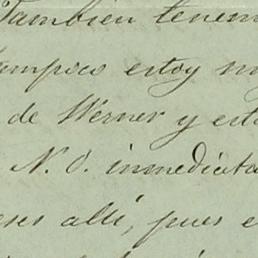 Tambien tenem
ampico estoy m
de Werner y est
N. O. inmediata
eses alli, pues e